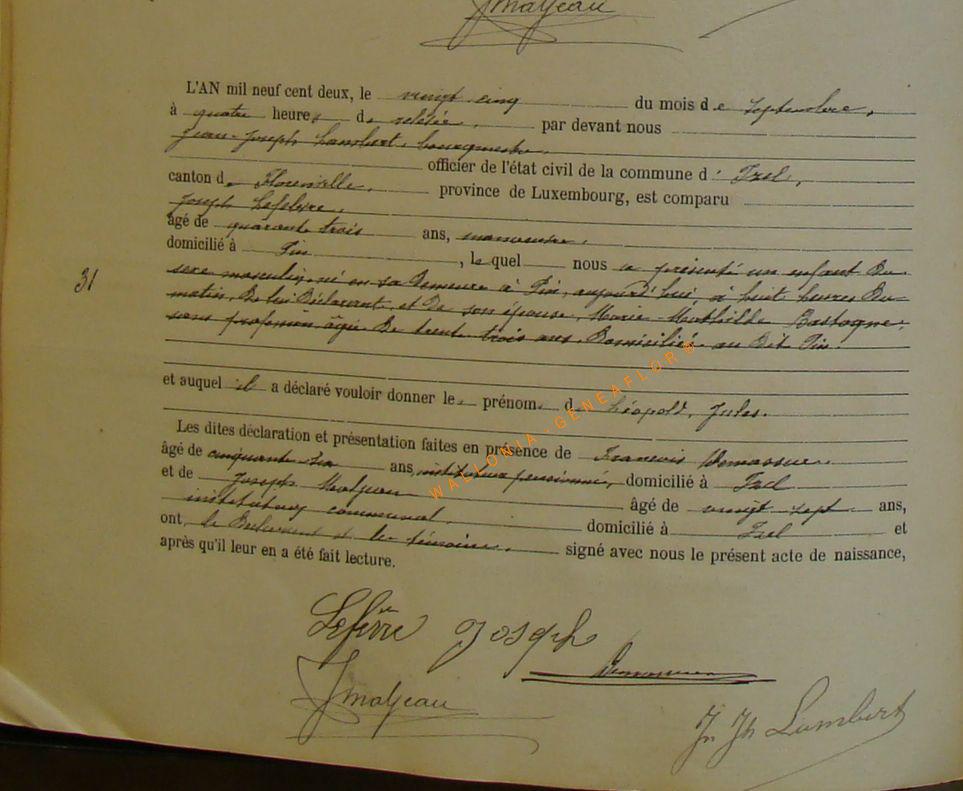 JMaljeau
L'AN mil neuf cent deux, le vingt cinq du mois de septembre,
à quatre heures de relevée, par devant nous
Jean-Joseph Lambert, bourgmestre,
officier de l'état civil de la commune d' Izel,
canton de Florenville, province de Luxembourg, est comparu
Joseph Lefebvre,
âgé de quarante trois ans, manoeuvre,
domicilié à Pin, lequel nous a présenté un enfant du
31
sexe masculin, né en sa demeure à Pin, aujourd'hui, à huit heures du
matin, de lui déclarant, et de son épouse, Marie-Mathilde Bastogne,
sans profession âgée de trente trois ans, domiciliée au dit Pin.
et auquel il a déclaré vouloir donner les prénoms de Léopold, Jules.
WALLONIA-GENEAFLORE
Les dites déclaration et présentation faites en présence de François
âgé de cinquante six ans, instituteur pensionné, domicilié à Izel
et de Joseph Maljean âgé de vingt sept ans,
instituteur communal, domicilié à Izel et
ont, le déclarant et les témoins, signé avec nous le présent acte de naissance,
après qu'il leur en a été fait lecture.
Lefèvre Joseph
JMaljeau
Jn Jh Lambert